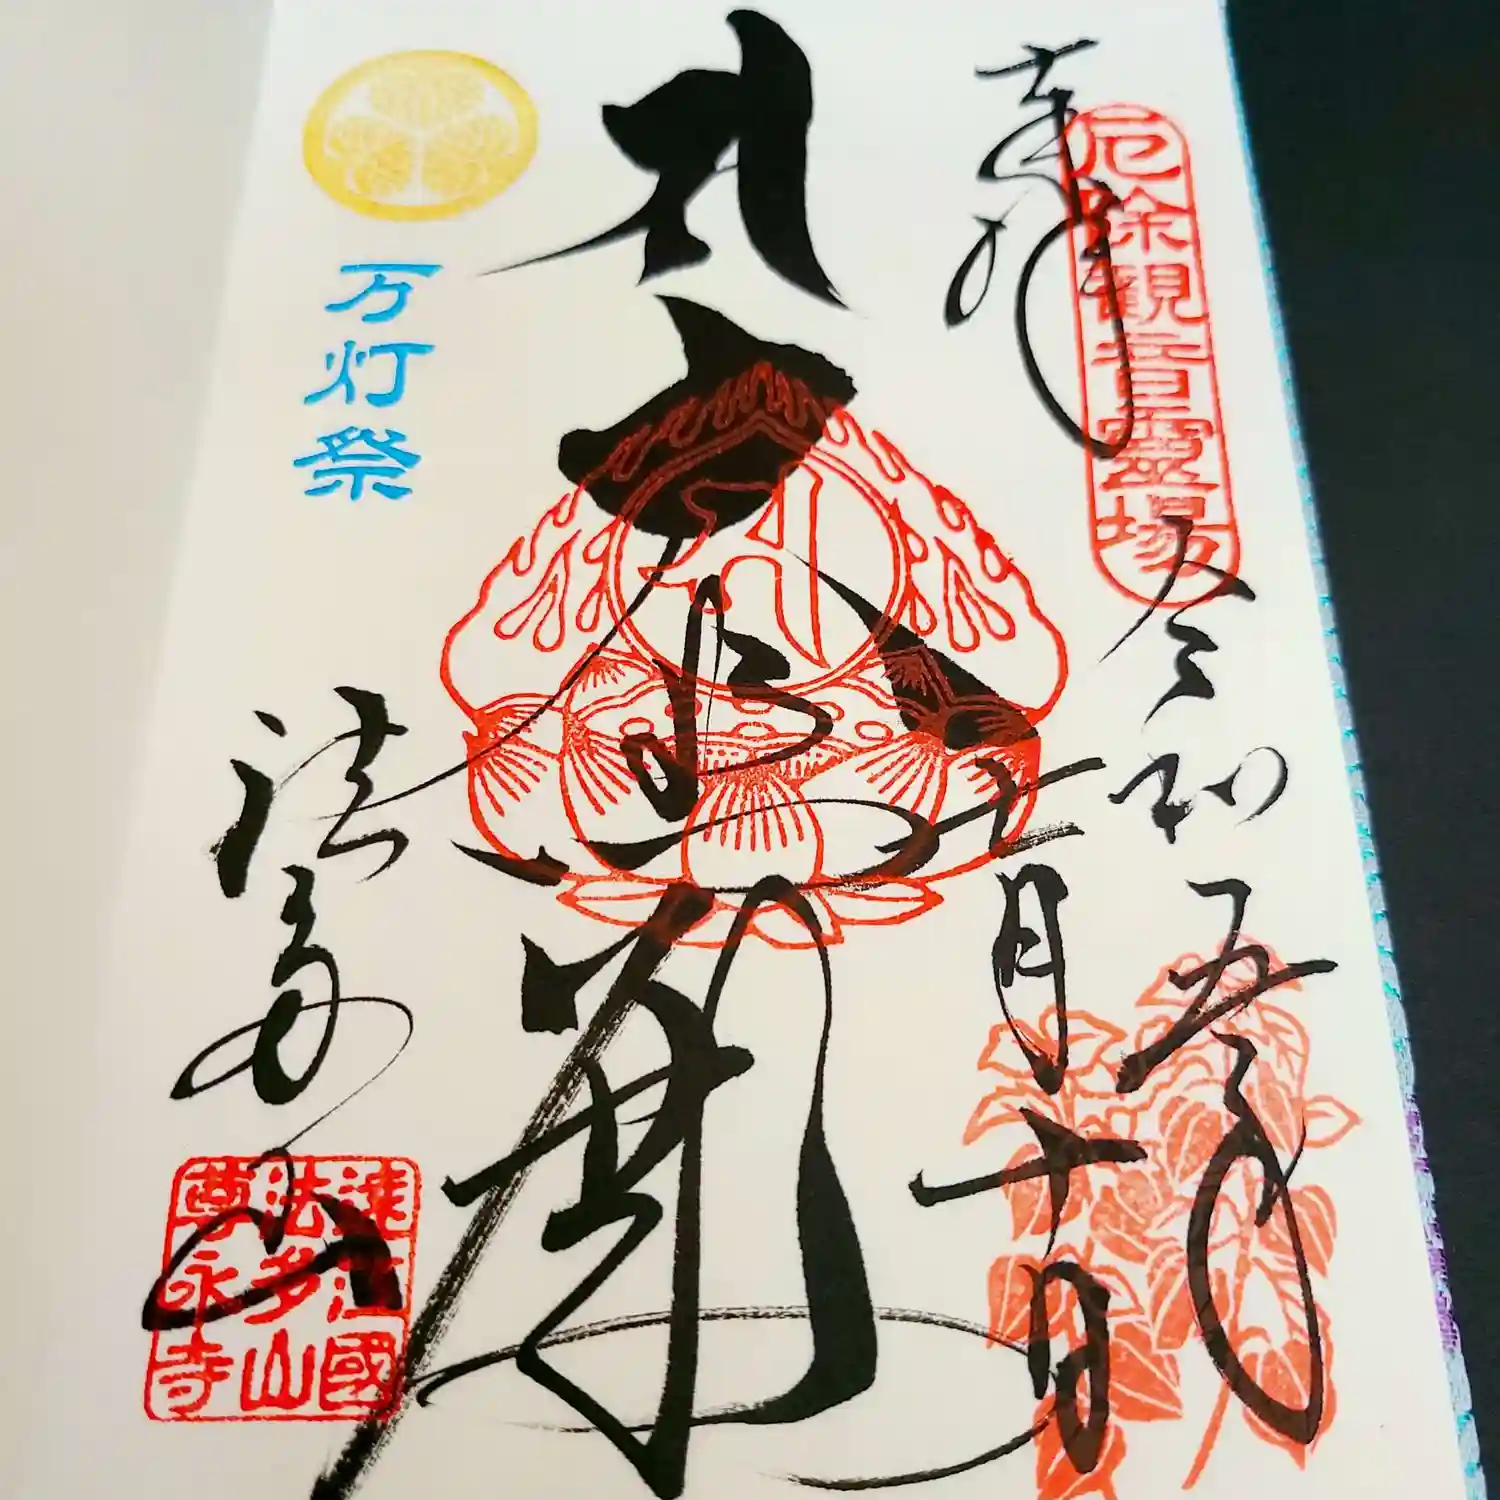 奉拝
厄除観音靈場
令和五年
七月十日
万灯祭
法多山
遠江國
法多山
尊永寺